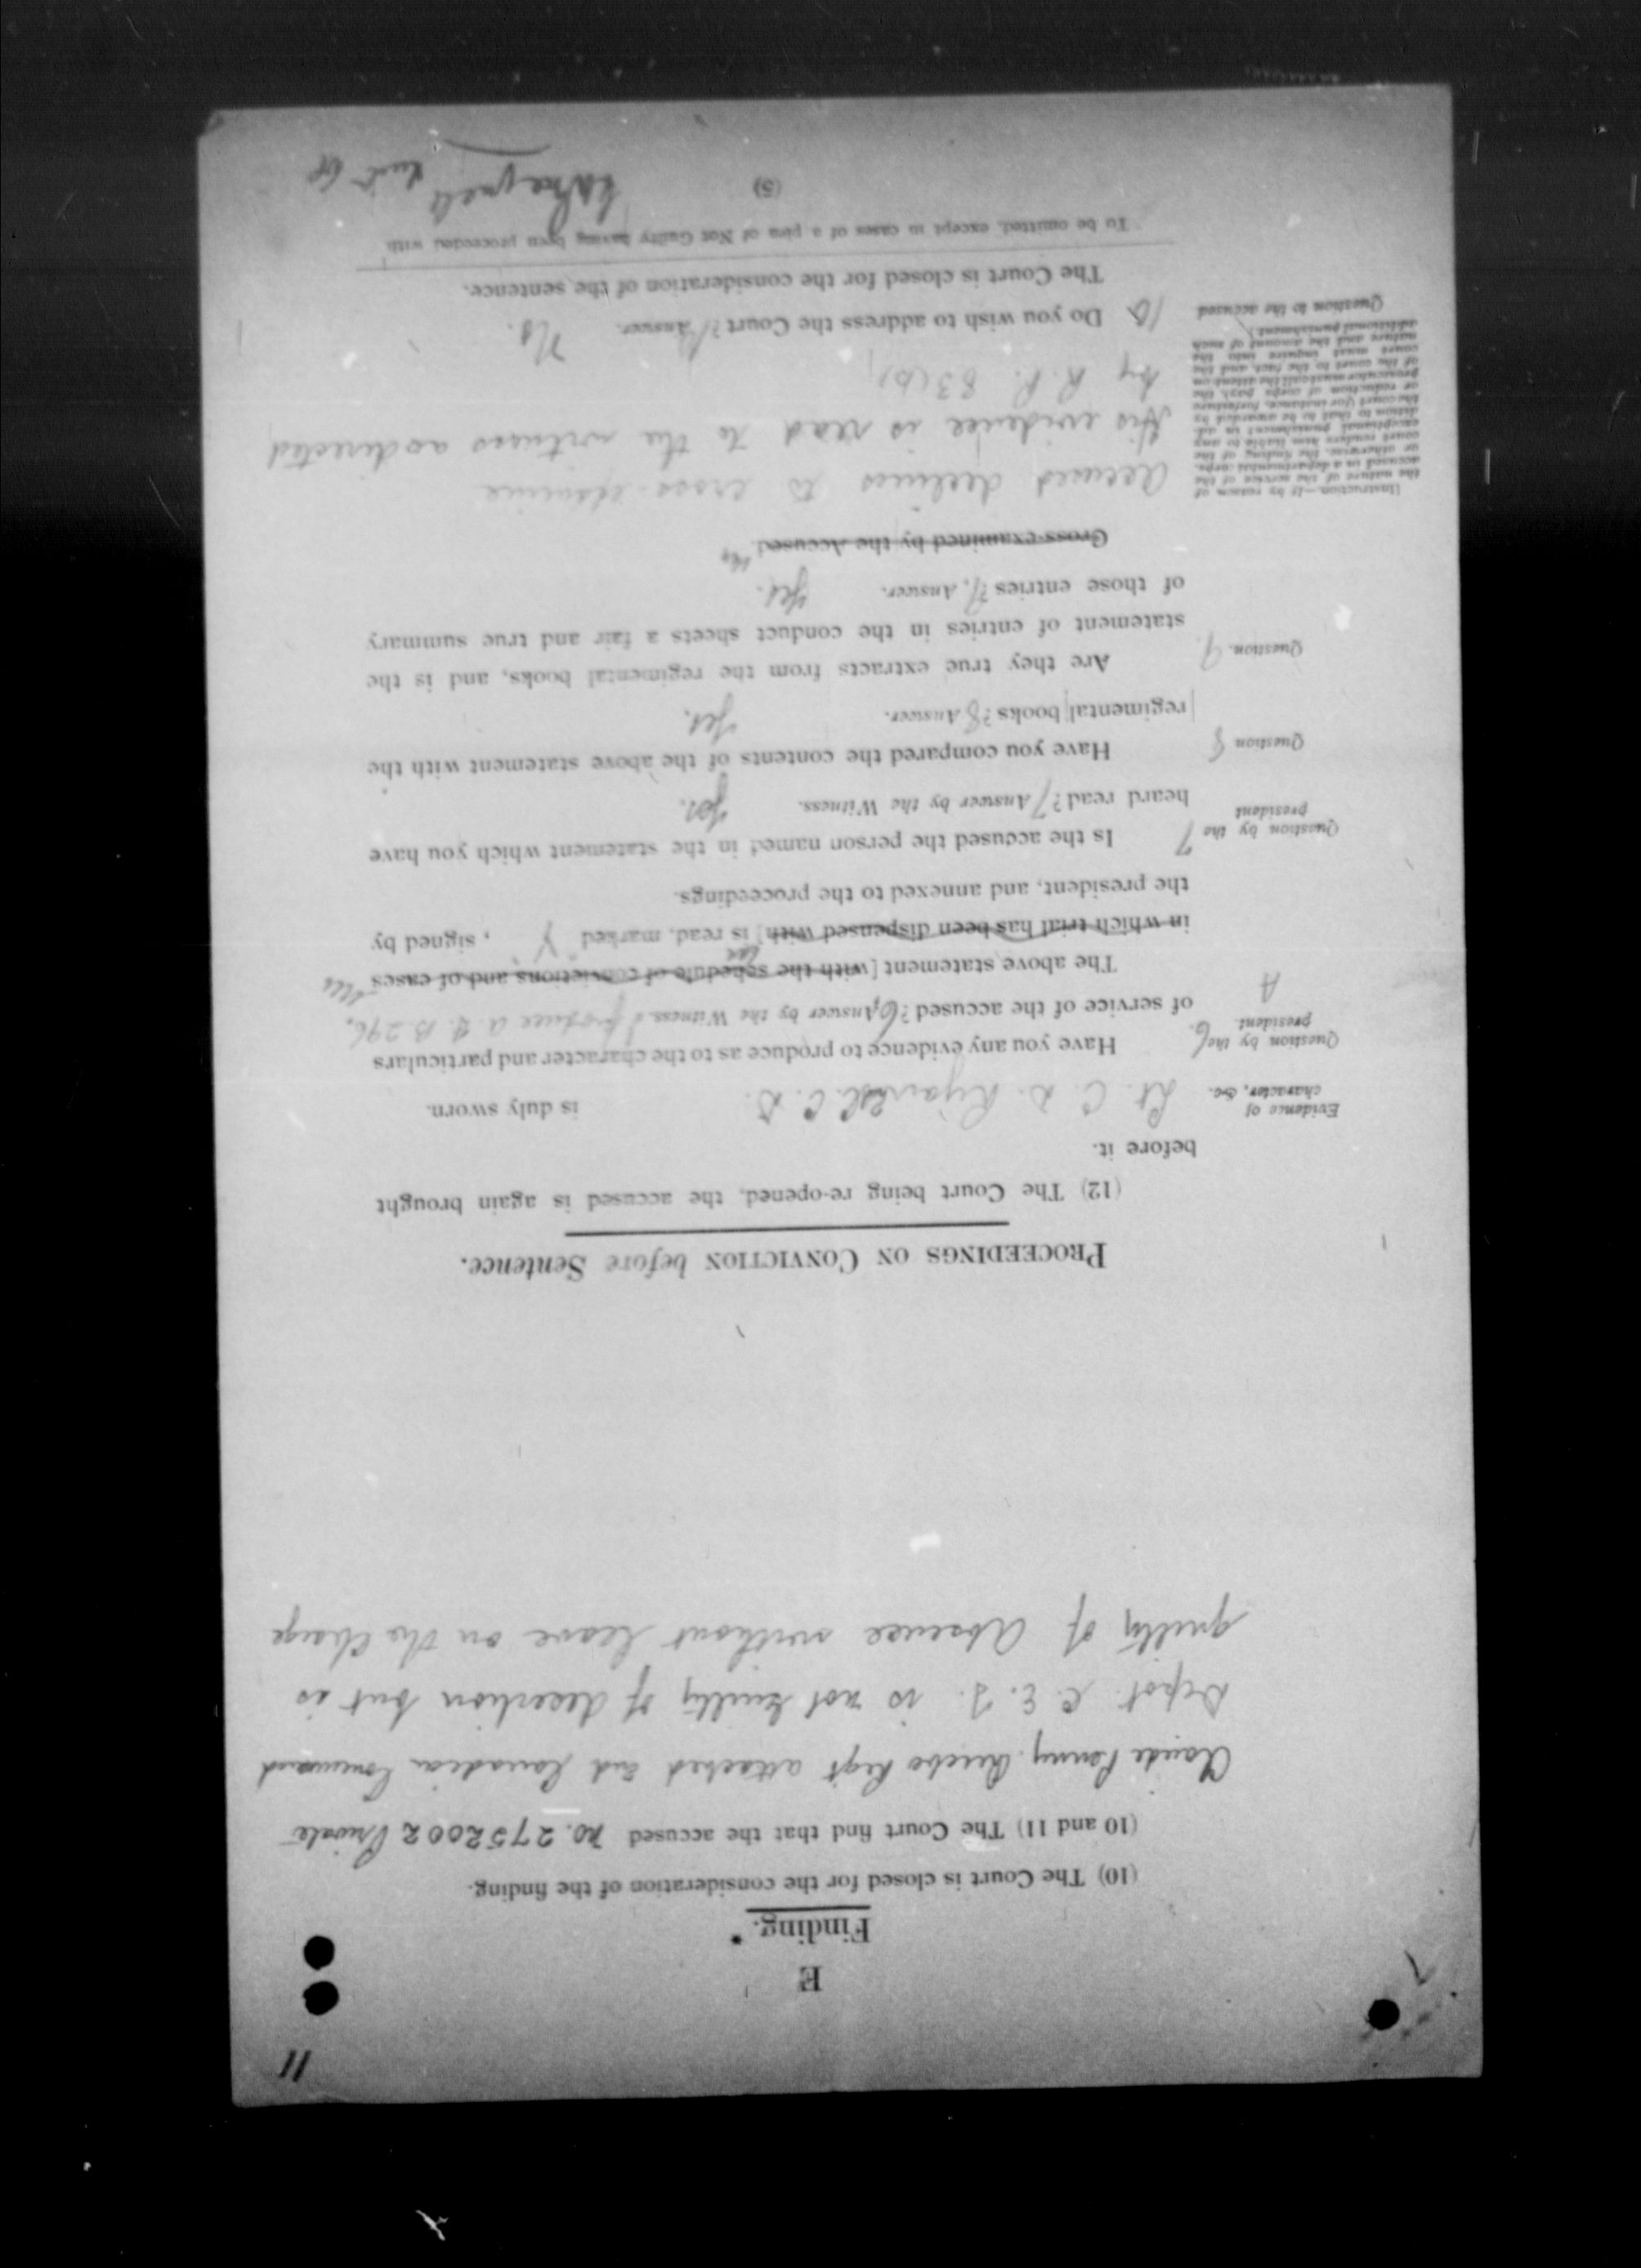 11
E
Finding.
(10) The Court is closed for the consideration of the finding.
(10 and 11) The Court find that the accused No. 2752002 Private
Claude Penny Quebec Reg't attached 2nd Canadian Command
Depot. C. E. F. is not guilty of desertion but is
guilty of Absence without leave on the charge
PROCEEDINGS ON CONVICTION before Sentence.
(12) The Court being re-opened, the accused is again brought
before it.
Evidence of character, &c. Lt. C. D. C. D. is duly sworn.
Question by the president 6. Have you any evidence to produce as to the character and particulars
of service of the accused? 6. Answer by the Witness. I produce A. F. B 296.
A The above statement [with the schedule of convictions and of cases
in which trial has been dispensed with] is read, marked Y, signed by
the president, and annexed to the proceedings.
Question by the president 7 Is the accused the person named in the statement which you have
heard read? 7 Answer by the Witness. Yes.
Question 8 Have you compared the contents of the above statement with the
regimental books? 8 Answer. Yes.
Question. 9. Are they true extracts from the regimental books, and is the
statement of entries in the conduct sheets a fair and true summary
of those entries? 9. Answer. Yes.
Cross-examined by the Accused.
[Instruction.—If by reason of
the nature of the service of the
accused in a departmental corps,
or otherwise, the finding of the
court renders him liable to any
exceptional punishment in ad-
dition to that to be awarded by
the court (for instance, forfeiture
or reduction of corps pay), the
prosecutor must call the attention
of the court to the fact, and the
court must inquire into the
nature and the amount of such
additional punishment.]
Accused declines to cross-examine
His evidence is read to the witness as directed
by R. P. 83 (B)
Question to the accused 10 Do you wish to address the Court? Answer. No.
The Court is closed for the consideration of the sentence.
To be omitted, except in cases of a plea of Not Guilty having been proceeded with
(5)